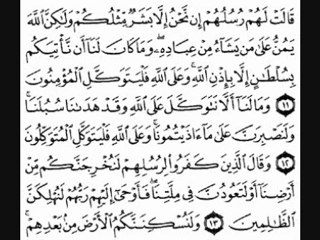 قَالَتْ لَهُمْ رُسُلُهُمْ إِن نَّحْنُ إِلَّا بَشَرٌ مِّثْلُكُمْ وَلَٰكِنَّ ٱللَّهَ
يَمُنُّ عَلَىٰ مَن يَشَآءُ مِنْ عِبَادِهِۦ ۖ وَمَا كَانَ لَنَآ أَن نَّأْتِيَكُم
بِسُلْطَٰنٍ إِلَّا بِإِذْنِ ٱللَّهِ ۚ وَعَلَى ٱللَّهِ فَلْيَتَوَكَّلِ ٱلْمُؤْمِنُونَ
١١ وَمَا لَنَآ أَلَّا نَتَوَكَّلَ عَلَى ٱللَّهِ وَقَدْ هَدَىٰنَا سُبُلَنَا ۚ
وَلَنَصْبِرَنَّ عَلَىٰ مَآ ءَاذَيْتُمُونَا ۚ وَعَلَى ٱللَّهِ فَلْيَتَوَكَّلِ ٱلْمُتَوَكِّلُونَ
١٢ وَقَالَ ٱلَّذِينَ كَفَرُوا۟ لِرُسُلِهِمْ لَنُخْرِجَنَّكُم مِّنْ
أَرْضِنَآ أَوْ لَتَعُودُنَّ فِى مِلَّتِنَا ۖ فَأَوْحَىٰٓ إِلَيْهِمْ رَبُّهُمْ لَنُهْلِكَنَّ
ٱلظَّٰلِمِينَ ١٣ وَلَنُسْكِنَنَّكُمُ ٱلْأَرْضَ مِنۢ بَعْدِهِمْ ۚ